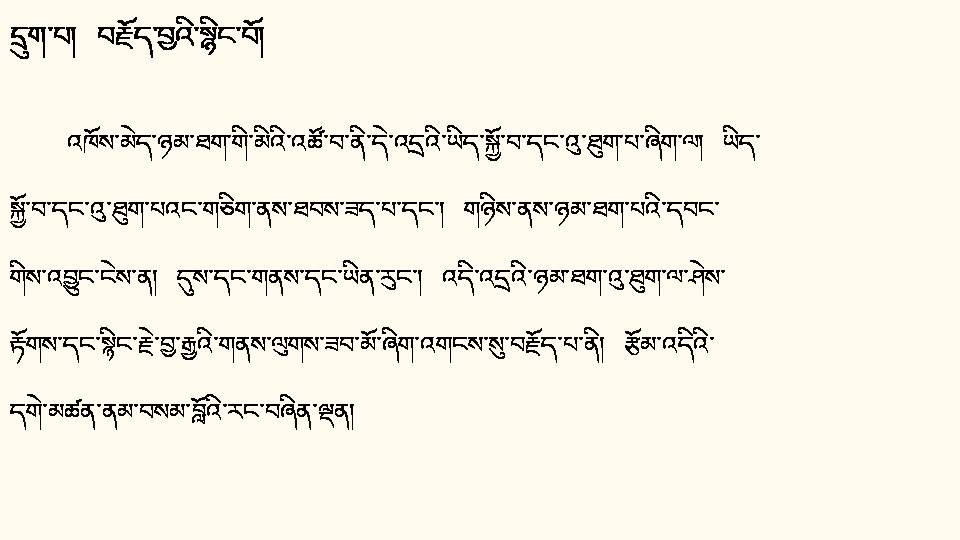 དྲུག་པ།  བརྗོད་བྱའི་སྙིང་པོ།
འཁོས་མེད་ཉམ་ཐག་གི་མིའི་འཚོ་བ་ནི་དེ་འདྲའི་ཡིད་སྐྱོ་བ་དང་འུ་ཐུག་པ་ཞིག་ལ།  ཡིད་
སྐྱོ་བ་དང་འུ་ཐུག་པའང་གཅིག་ནས་ཐབས་ཟད་པ་དང་།  གཉིས་ནས་ཉམ་ཐག་པའི་དབང་
གིས་འབྱུང་ངེས་ན།  དུས་དང་གནས་དང་ཡིན་རུང་།  འདི་འདྲའི་ཉམ་ཐག་འུ་ཐུག་ལ་ཤེས་
རྟོགས་དང་སྙིང་རྗེ་བྱ་རྒྱུའི་གནས་ལུགས་ཟབ་མོ་ཞིག་འགངས་སུ་བརྗོད་པ་ནི།  རྩོམ་འདིའི་
དགེ་མཚན་ནམ་བསམ་བློའི་རང་བཞིན་ལྡན།